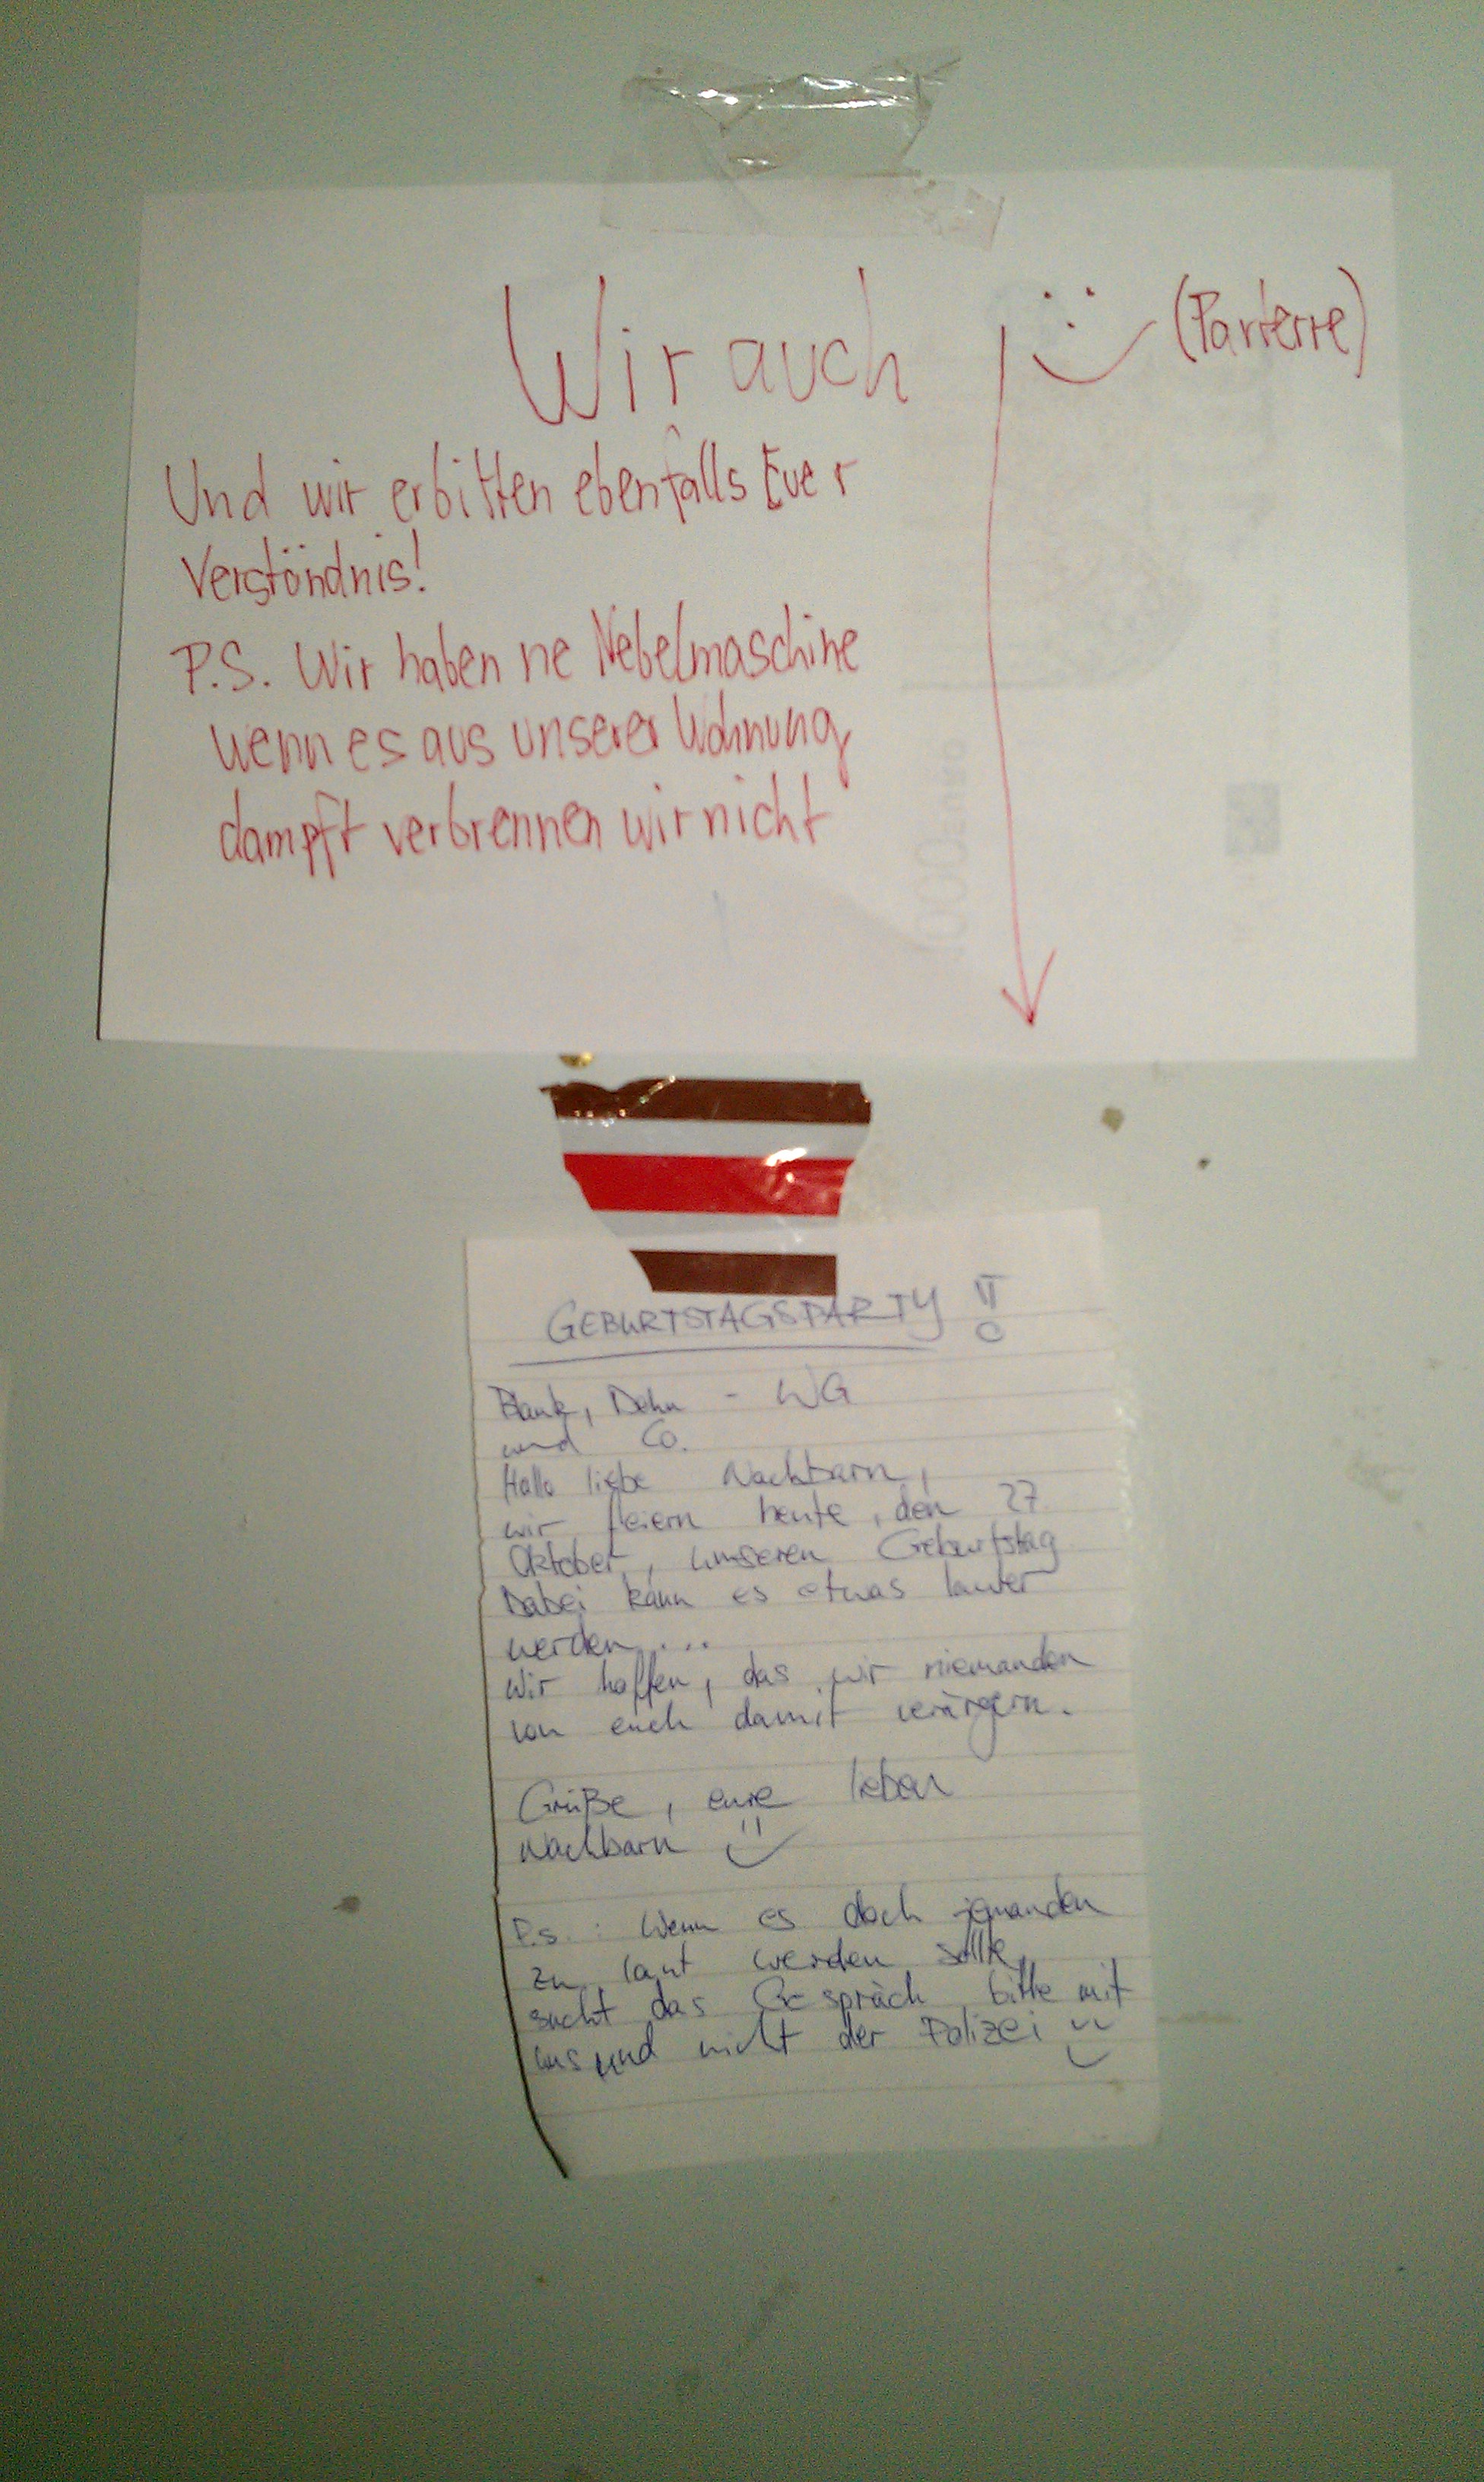 Wir auch (Parterre)
Und wir erbitten ebenfalls Euer
Verständnis!
P.S. Wir haben ne Nebelmaschine
wenn es aus unserer Wohnung
dampft verbrennen wir nicht
GEBURTSTAGSPARTY !!
Blank, Dehn - WG
und Co.
Hallo liebe Nachbarn,
wir feiern heute, den 27.
Oktober, unseren Geburtstag
Dabei kann es etwas lauter
werden...
Wir hoffen, das wir niemanden
von euch damit verärgern.
Grüße, eure lieben
Nachbarn
P.S.: Wenn es doch jemanden
zu laut werden sollte,
sucht das Gespräch bitte mit
uns und nicht der Polizei